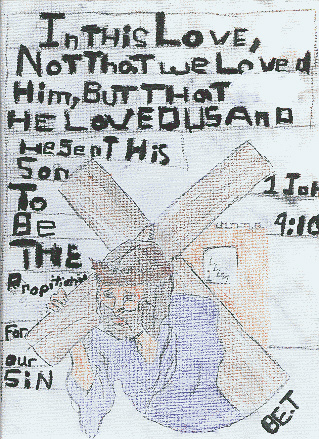 In THIS LOVE,
NOT THAT we LOVED
HIM, BUT THAT
HE LOVED US AND
HE SENT HIS
SON
TO
BE
THE
Propitiation
For
our
SIN
1 Joh
4:10
BE.T